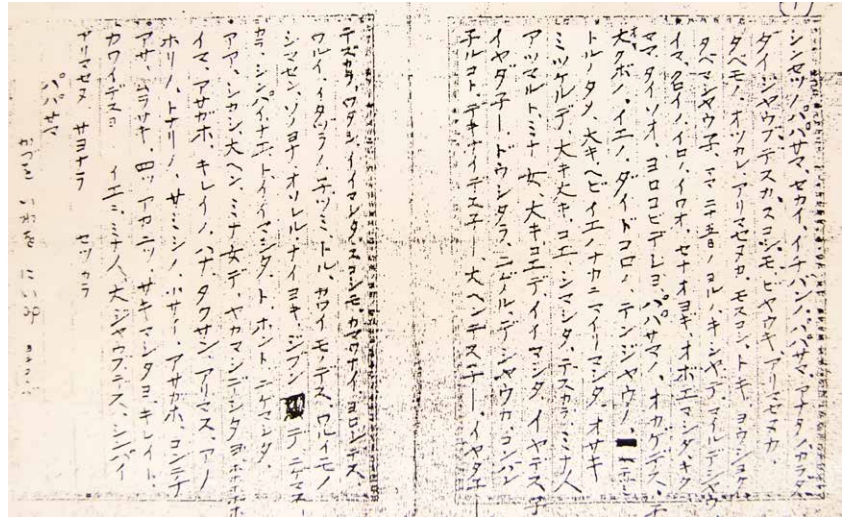 (1)
シンセツノ、パパサマ、セカイ、イチバンノ、パパサマ、アナタノ、カラダ、
ダイジヤウブデスカ、スコシモ、ビヤウキ、アリマセヌカ、
タベモノ、オツカレ、アリマセヌカ、モスコシ、トキ、ヨウジヨケ
タベマシヤウ子、ママ 二十五日ノ ヨルノ、キシヤデ、マイルデシヤウ
イマ、クロイノ、イロノ、イワオ、セナオ、ヨキ、オボエマシタ、キク
ママ、タイソオ、ヨロコビデシヨ、パパサマノ、オカゲデス、
大クボノ、イエノ、ダイドコロノ、テンジヤウノ、
トルノタメ、大キヘビ イエノナカニ マイリマシタ オサキ
ミツケルデ、大キ大キ、コエ、シマシタ、デスカラ、ミナ人
アツマルト、ミナ 女、大キコエデ、イイマシタ イヤデス子
イヤダ子ードウシタラ、ニゲル、デシヤウカ、コンバン
子ルコト、デキナイデス子ー、大ヘンデス子ー、イヤダ子ー
デスカラ、ワタシ、イイマシタ、スコシモ、カマウナイ、ヨロシデス、
ワルイ、イタヅラノ、子ヅミ、トル、カワイ、モノデス、ワルイモノ
シマセン、ソノヨナ、オソレル、ナイ、ヨキ、ジブン デ ニゲマス
カラ、シンパイ、ナエ、トイイマシタ、ト ホント ニゲマシタ、
アア、シカシ、大ヘン、ミナ 女デ、ヤカマシデシタヨ ホホホホ
イマ、アサガホ、キレイノ、ハナ タクサン、アリマス、アノ
ホリノ、トナリノ、サミシノ、小サイ、アサガホ、コンニチ
アサ、ムラサキ、四ツ アカ 二ツ、サキマシタヨ、キレイト、
カワイデス イエニ、ミナノ、大ジヤウブデス、シンパイ
アリマセヌ サヨナラ セツカラ
パパサマ
かつを いわを にい